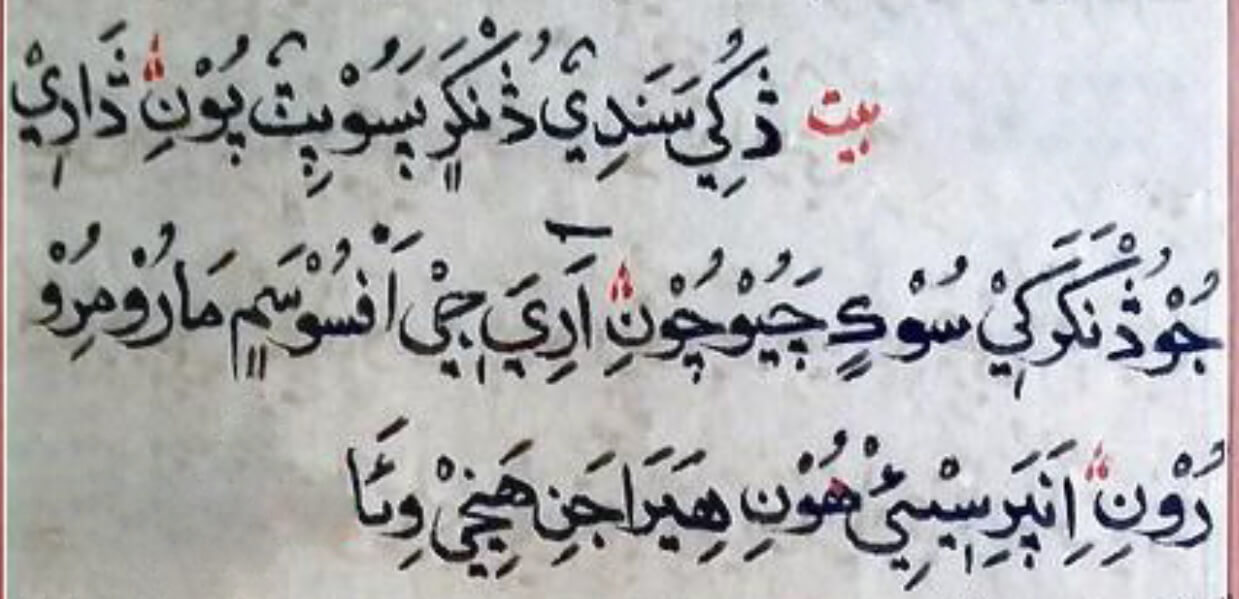 بيت ڎُکِي سَندِيْ ڎُنْکَرٍ پَسُوْ پِٿ پُوْنِ ڎَارِيْ
جُوْ ڎُنْکَرَ کِيْ سُوْ کٍ جَيُوْ چُوْنِ آرِيَ جِيْ اَفْسُوْسَمٍ مَارُوْ مِرُوْ
رُوْنِ اِنپَرِ سِيْئِيْ هُوْنِ هِيَرَا جَنِ هَنجِيْ وِئَا